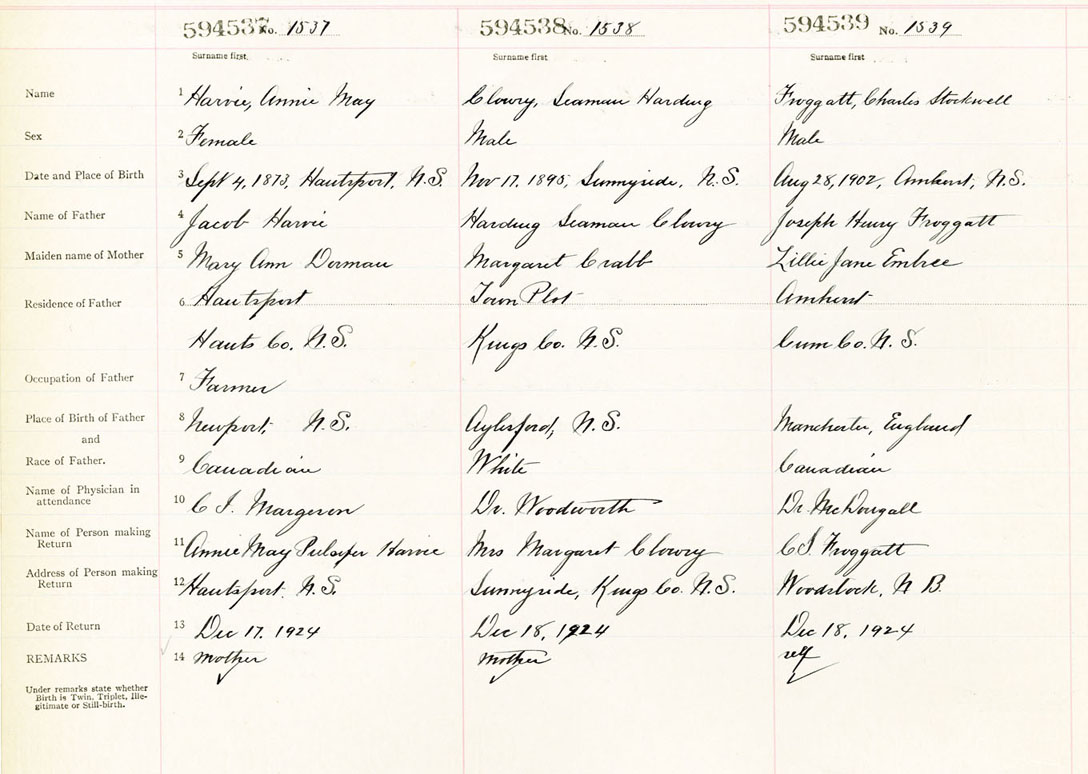 594537 No. 1537 594538 No. 1538 594539 No. 1539
Surname first. Surname first Surname first
Name 1 Harvie, Annie May Clowry, Seaman Harding Froggatt, Charles Stockwell
Sex 2 Female Male Male
Date and Place of Birth 3 Sept 4, 1873, Hantsport, N.S. Nov 17, 1895, Sunnyside, N.S. Aug 28, 1902, Amherst, N.S.
Name of Father 4 Jacob Harvie Harding Seaman Clowry Joseph Henry Froggatt
Maiden name of Mother 5 Mary Ann Dorman Margaret Crabb Lillie Jane Embree
Residence of Father 6 Hantsport Town Plot Amherst
Hants Co. N.S. Kings Co. N.S. Cum Co. N.S.
Occupation of Father 7 Farmer
Place of Birth of Father 8 Newport, N.S. Aylesford, N.S. Manchester, England
and
Race of Father. 9 Canadian White Canadian
Name of Physician in
attendance 10 C I. Margeson Dr. Woodworth Dr. McDougall
Name of Person making
Return 11 Annie May Pulsifer Harvie Mrs Margaret Clowry C S. Froggatt
Address of Person making
Return 12 Hantsport. N.S. Sunnyside, Kings Co. N.S. Woodstock, N B.
Date of Return 13 Dec 17, 1924 Dec 18, 1924 Dec 18, 1924
REMARKS 14 mother mother self
Under remarks state whether
Birth is Twin, Triplet, Ille-
gitimate or Still-birth.